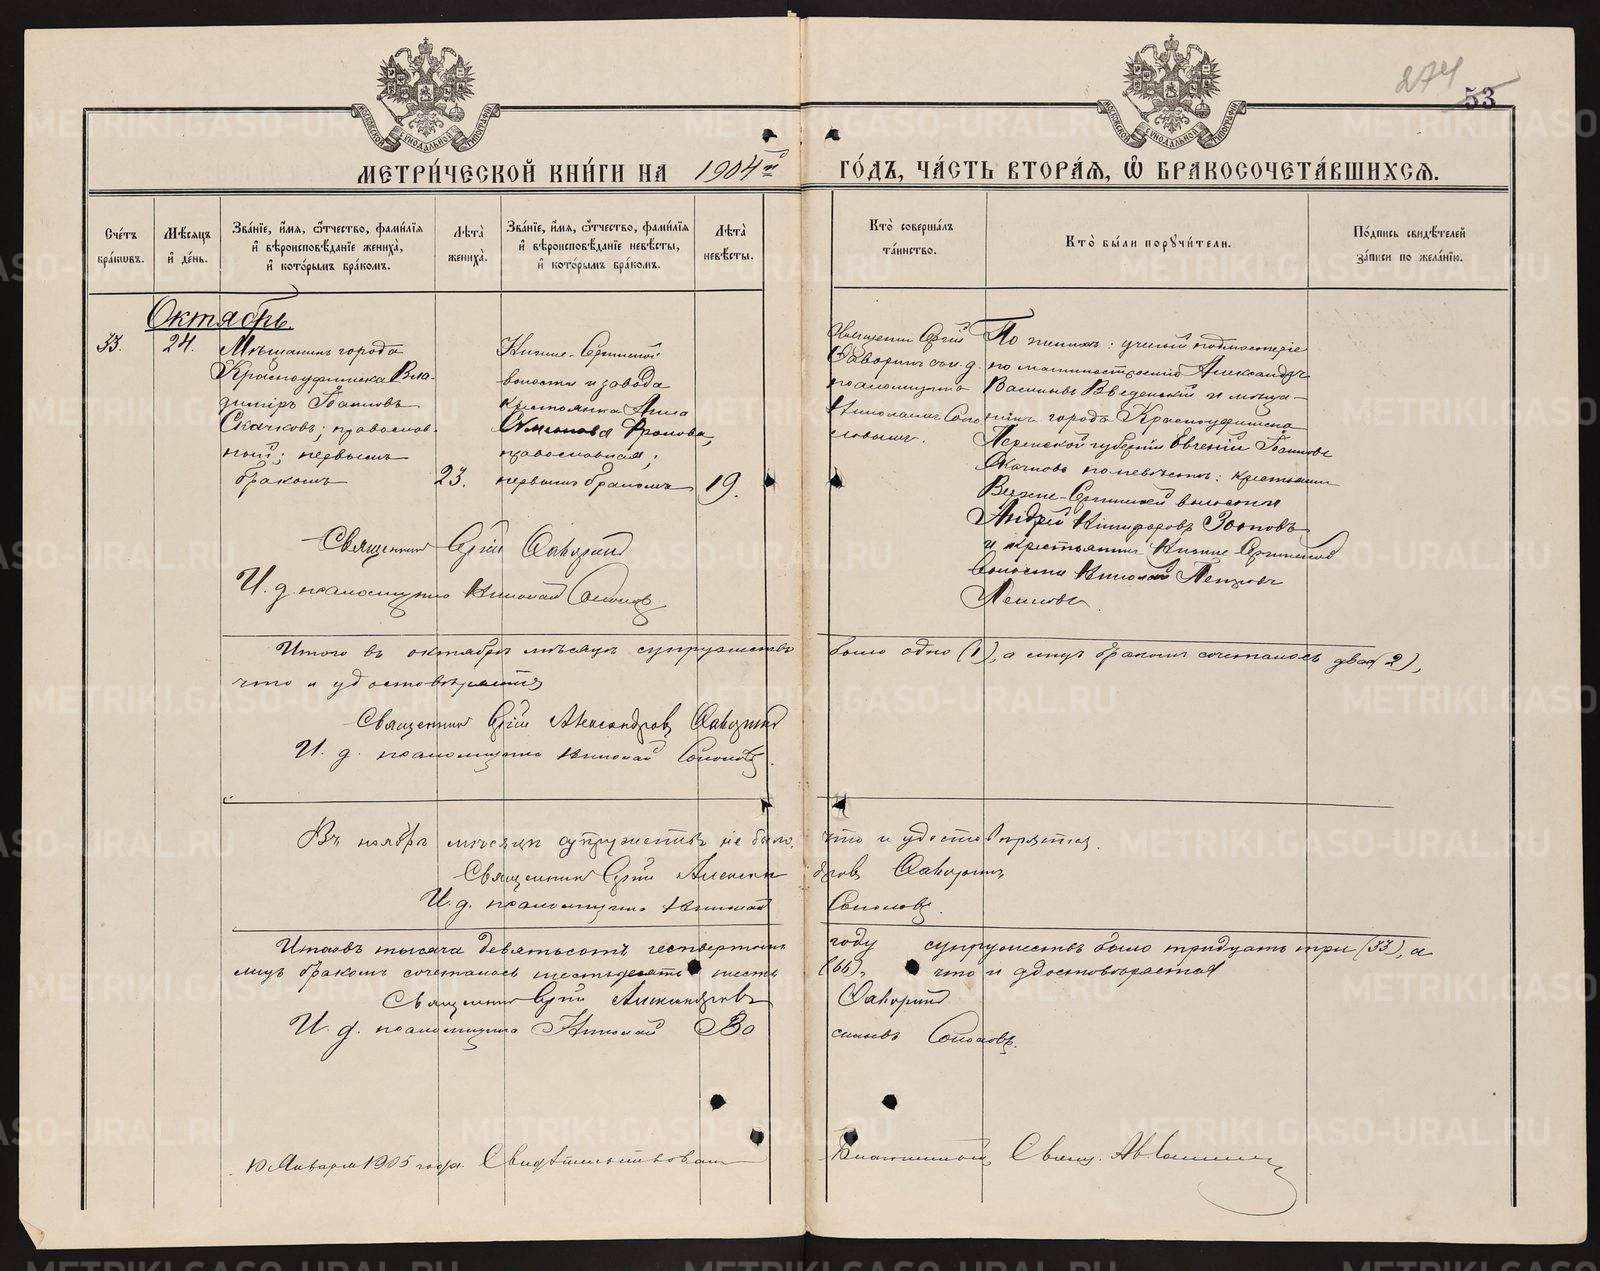 274
53
МЕТРИ́ЧЕСКОЙ КНИ́ГИ НА 1904 й ГО́ДЪ, ЧА́СТЬ ВТОРА́Я, Ѡ҆ БРАКОСОЧЕТА́ВШИХСЯ.
Сче́тъ бра́кѡвъ.
Мѣ́сяцъ и҆ де́нь.
Зва́нїе, и҆́мя, ѻ҆́тчество, фами́лїя и҆ вѣроисповѣ́данїе жениха̀, и҆ кото́рымъ бра́комъ.
Лѣ́та̀ жениха̀.
Зва́нїе, и҆́мя, ѻ҆́тчество, фами́лїя и҆ вѣроисповѣ́данїе невѣ́сты, и҆ кото́рымъ бра́комъ.
Лѣ́та̀ невѣ́сты.
Кто̀ соверша́лъ та́инство.
Кто̀ бы́ли порꙋчи́тели.
По́дпись свидѣ́телей за́писи по жела́нїю.
Октябрь.
33.
24.
Мѣщанинъ города
Красноуфимска Вла-
димiръ Іоанновъ
Скачковъ; православ-
ный; первымъ
бракомъ
23.
Нижне-Сергинской
волости и завода
крестьянка Анна
Фролова,
православная;
первымъ бракомъ
19.
Священникъ Сергій
Фаворинъ съ и. д.
псаломщика
Николаемъ Соко-
ловымъ.
По женихѣ: ученый подмастеріе
по машиностроенію Александръ
Васильевъ Введенскій и мѣща-
нинъ города Красноуфимска
Пермской губерніи Евгеній Іоанновъ
Скачковъ по невѣстѣ: крестьянинъ
Сергинской волости
Андрей Никифоровъ
и крестьянинъ Нижне-Сергинской
волости Николай Петровъ
Священникъ Сергій Фаворинъ
И. д. псаломщика Николай Соколовъ
Итого въ октябрѣ мѣсяцѣ супружествъ было одно (1), а лицъ бракомъ сочеталось двое (2),
что и удостовѣряется
Священникъ Сергій Александровъ Фаворинъ
И. д. псаломщика Николай Соколовъ.
Въ ноябрѣ мѣсяцѣ супружествъ не было, что и удостовѣряется.
Священникъ Сергій Александровъ Фаворинъ
И. д. псаломщика Николай Соколовъ.
Итого въ тысяча девятьсотъ четвертомъ году супружествъ было тридцать три (33), а
лицъ бракомъ сочеталось шестьдесятъ шесть (66), что и удостовѣряется
Священникъ Сергій Александровъ Фаворинъ
И. д. псаломщика Николай Васильевъ Соколовъ.
10 Января 1905 года. Свидѣтельствовалъ Благочинный, Свящ.
METRIKI.GASO-URAL.RU